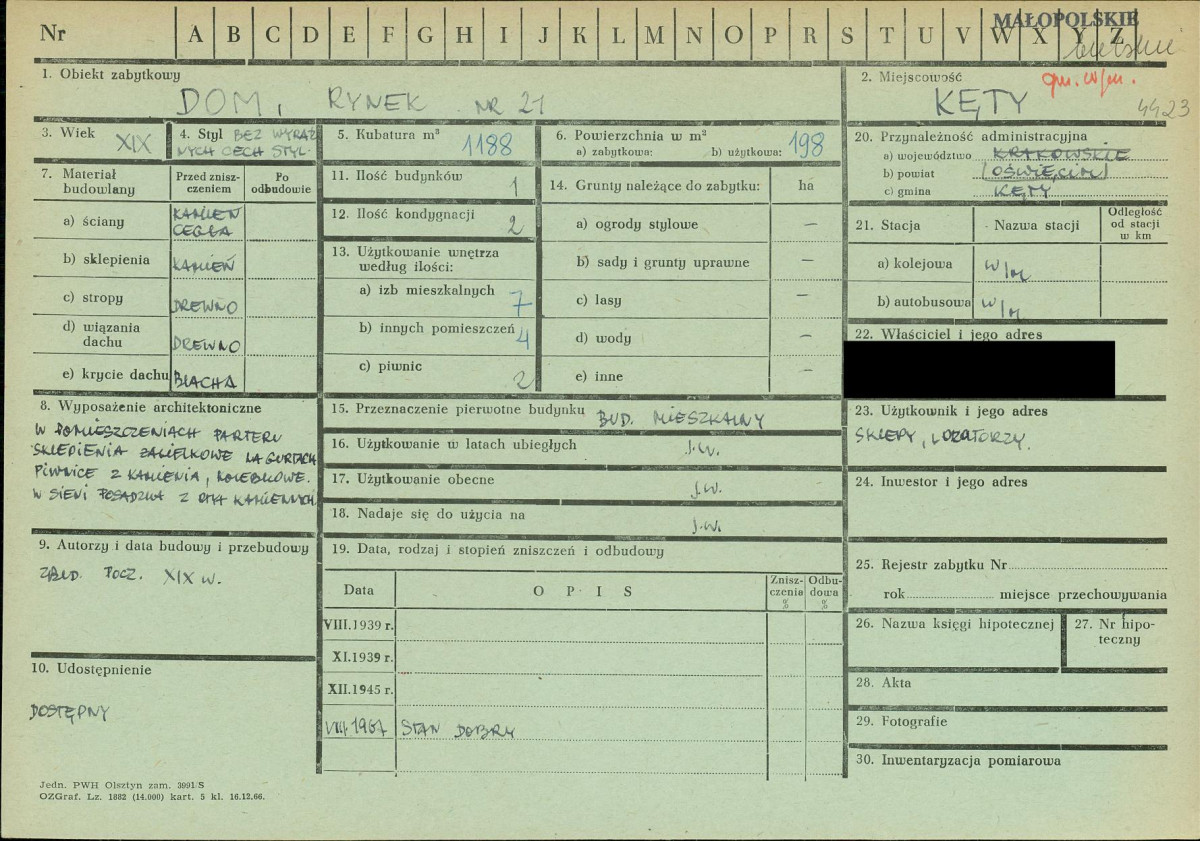 MAŁOPOLSKIE
Nr A B C D E F G H I J K L M N O P R S T U V W X Y Z
bielskie
1. Obiekt zabytkowy
DOM, RYNEK NR 21
2. Miejscowość
gm. w/m.
KĘTY
4423
3. Wiek XIX
4. Styl BEZ WYRAŹ
NYCH CECH STYL.
5. Kubatura m³
1188
6. Powierzchnia w m²
a) zabytkowa: b) użytkowa: 198
7. Materiał
budowlany
Przed znisz-
czeniem
Po
odbudowie
a) ściany KAMIEŃ
CEGŁA
b) sklepienia KAMIEŃ
c) stropy DREWNO
d) wiązania
dachu DREWNO
e) krycie dachu BLACHA
8. Wyposażenie architektoniczne
W POMIESZCZENIACH PARTERU
SKLEPIENIA ŻAGIELKOWE NA GURTACH
PIWNICE Z KAMIENIA, KOLEBKOWE.
W SIENI POSADZKA Z PŁYT KAMIENNYCH
9. Autorzy i data budowy i przebudowy
ZBUD. POCZ. XIX W.
10. Udostępnienie
DOSTĘPNY
11. Ilość budynków 1
12. Ilość kondygnacji 2
13. Użytkowanie wnętrza
według ilości:
a) izb mieszkalnych 7
b) innych pomieszczeń 4
c) piwnic 2
14. Grunty należące do zabytku: há
a) ogrody stylowe —
b) sady i grunty uprawne —
c) lasy —
d) wody —
e) inne —
15. Przeznaczenie pierwotne budynku BUD. MIESZKALNY
16. Użytkowanie w latach ubiegłych J.W.
17. Użytkowanie obecne J.W.
18. Nadaje się do użycia na J.W.
19. Data, rodzaj i stopień zniszczeń i odbudowy
Data OPIS
Znisz-
czenia
%
Odbu-
dowa
%
VIII.1939 r.
XI.1939 r.
XII.1945 r.
VIII 1967 STAN DOBRY
20. Przynależność administracyjna
a) województwo KRAKOWSKIE
b) powiat (OŚWIĘCIM)
c) gmina KĘTY
21. Stacja Nazwa stacji
Odległość
od stacji
w km
a) kolejowa W/M
b) autobusowa W/M
22. Właściciel i jego adres
23. Użytkownik i jego adres
SKLEPY, LOKATORZY.
24. Inwestor i jego adres
25. Rejestr zabytku Nr
rok miejsce przechowywania
26. Nazwa księgi hipotecznej
27. Nr hipo-
teczny
28. Akta
29. Fotografie
30. Inwentaryzacja pomiarowa
Jedn. PWH Olsztyn zam. 3991/S
OZGraf. Lz. 1882 (14.000) kart. 5 kl. 16.12.66.